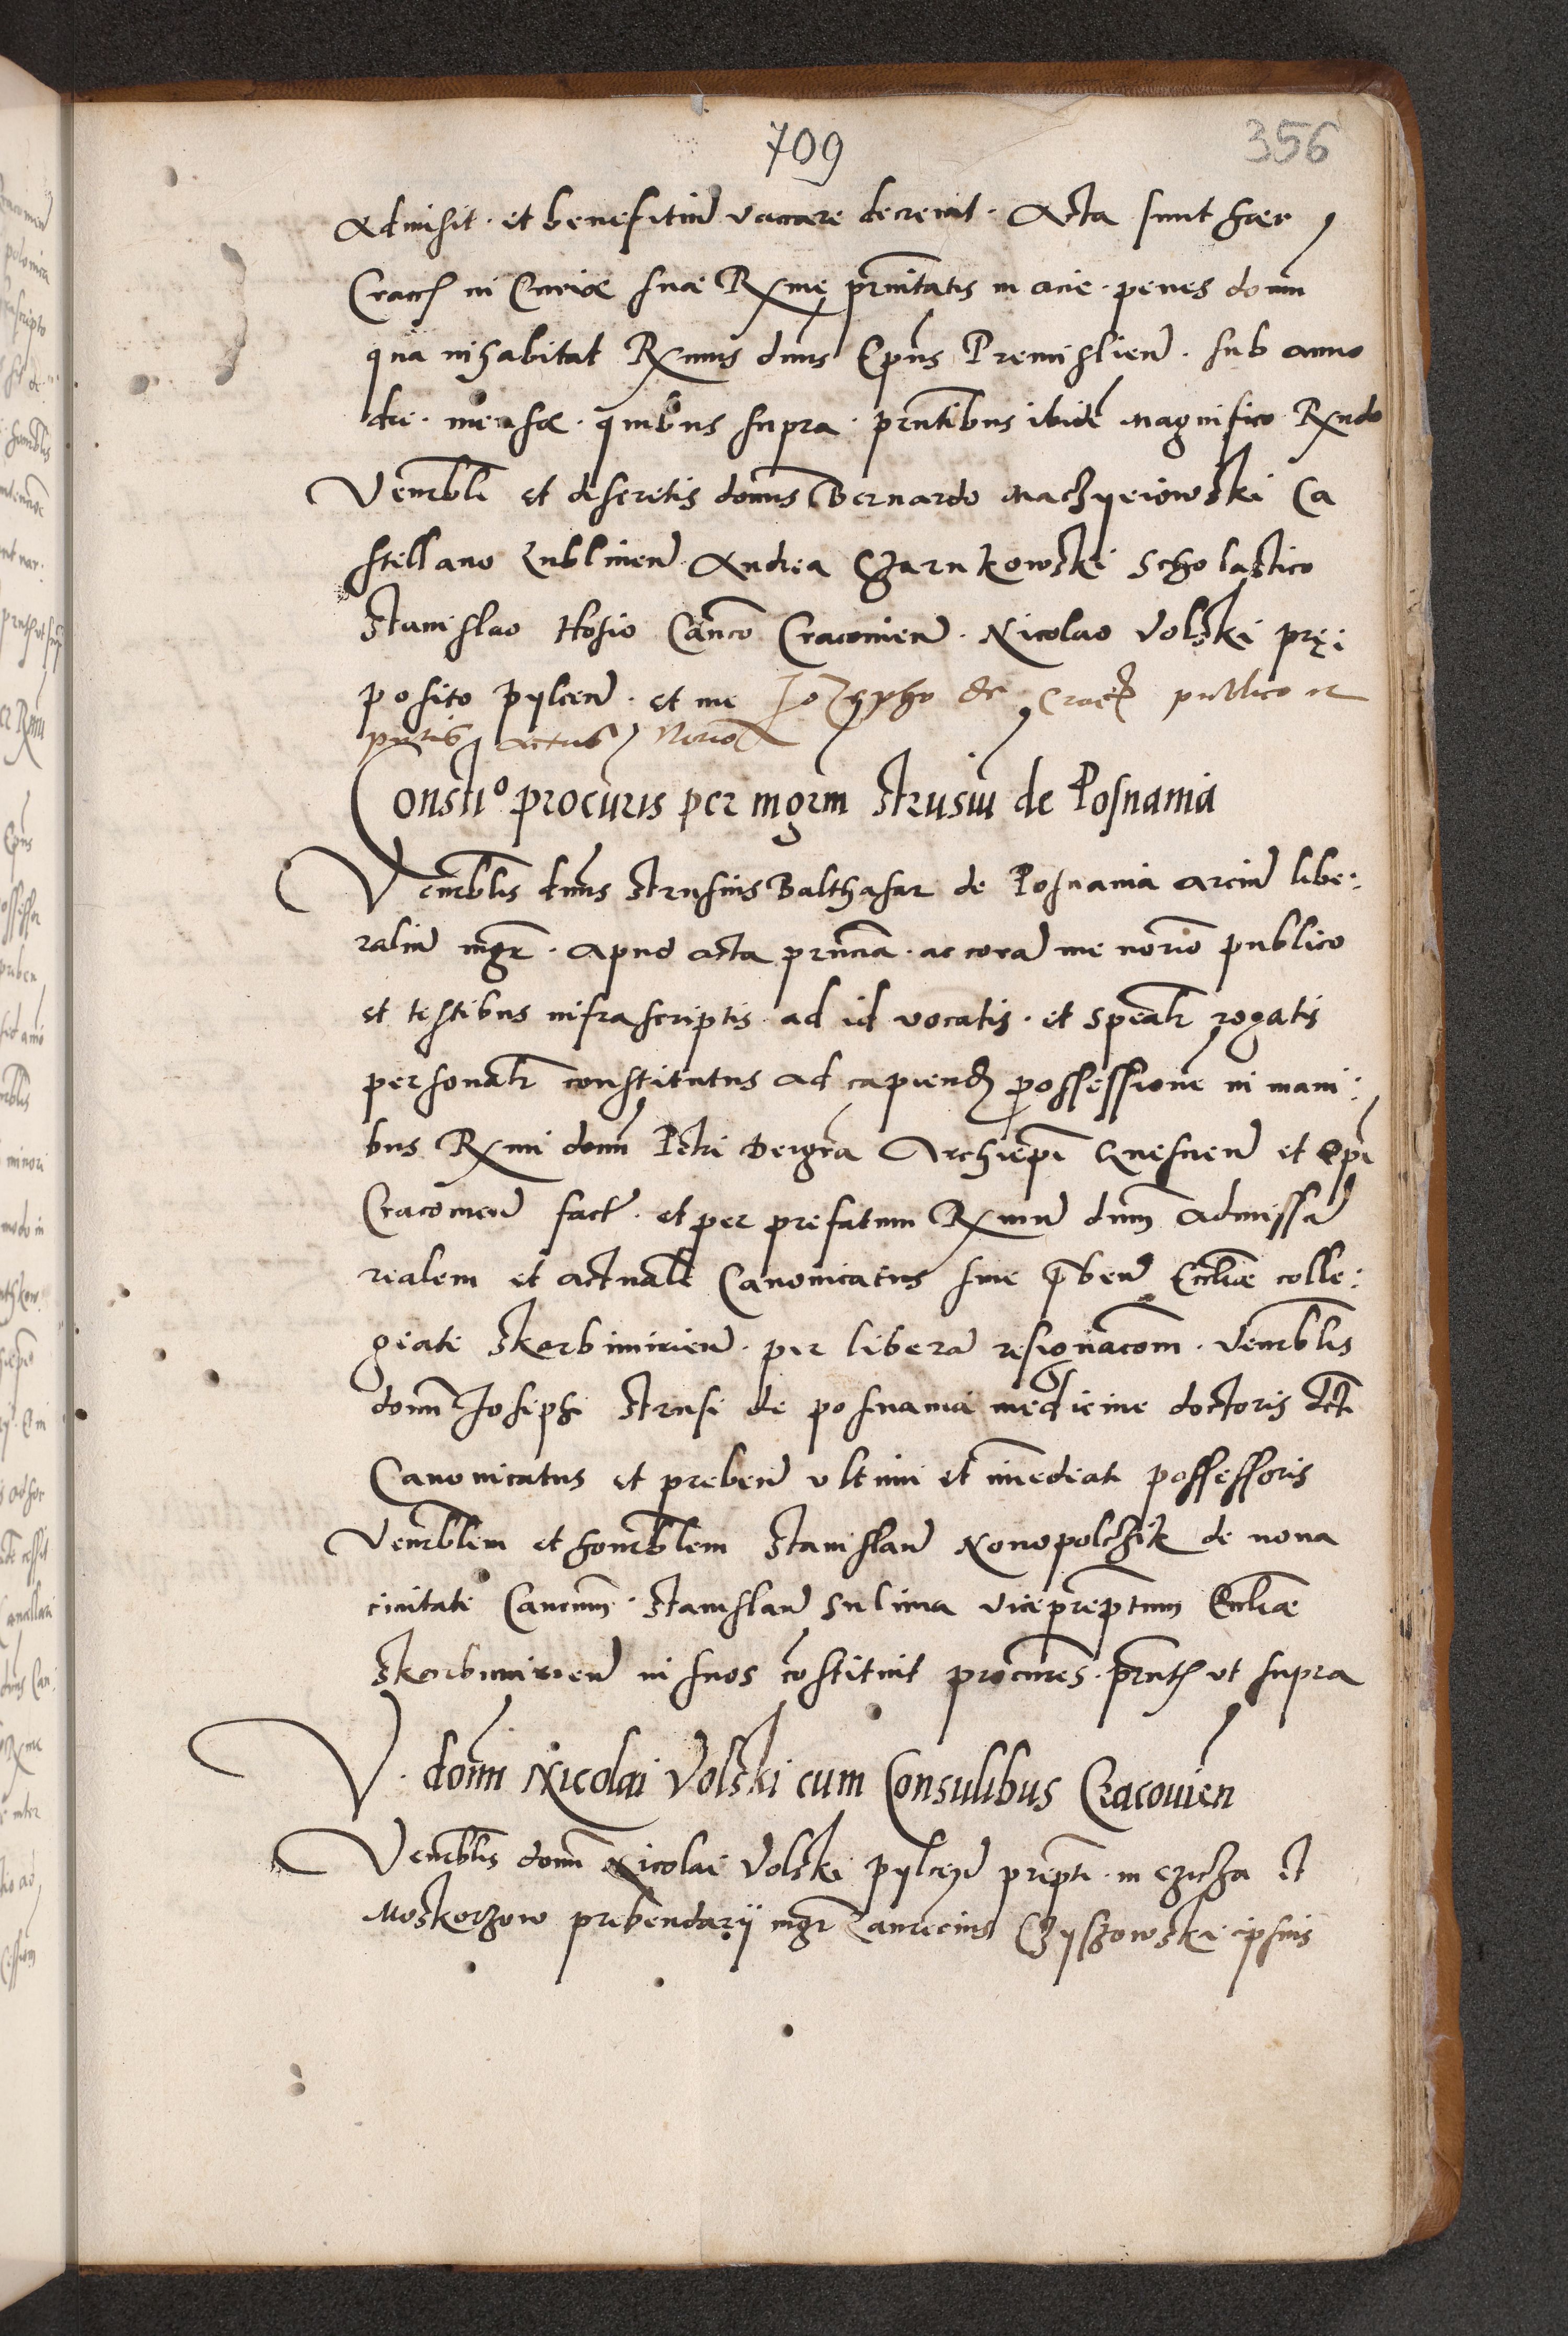 709
356
Admisit · et benefitiu vaccare decrevit · Acta sunt hæc
Craccę in Curiæ suæ Rxme prnitatis in acie · penes domu
qua inhabitat Rxmus dnus Epus Premislien · sub anno
die · mense · quibus supra · prntibus ibide magnifico Rxndo
Venrbli et discretis domis Bernardo Maczyeiowski Ca
stellano Lublinen Andrea Czarnkowski Scholastico
Stanislao Hosio Canco Cracovien · Nicolao Volski prę:
posito pylcen · et me Jozepho de Crac publico et
Constio procuris per mgrm Strusiu de Posnania
Venrblis dnus Strusius Balthasar de Posnania arciu libe:
raliu mgr · apud acta prncia · ac cora me norio publico
et testibus infrascriptis ad id vocatis · et spealr rogatis
personalr constitutus ad capiend possessione in mani:
bus Rxmi domi Petri dei gra Archiepi Gnesnen et Epi
Cracovien fact · et per prefatum Rxmu dnm admissa
realem et actuale Canonicatus sive prben Eccliæ colle:
giate Skarbimirien · per libera resignacom · Venrblis
domi Josiphi Strusi de posnania medicine doctoris dcti
Canonicatus et preben ultimi et imediati possessoris
Venrblem et honrblem Stanislau Novopolczik de nova
civitate Cancum · Stanislau Sulima viceprepTum Eccliæ
Skarbimirien in suos costituit procures · prntb ut supra
V · domi Nicolai Volski cum Consulibus Cracovien
Venrblis domi Nicolai Volski pylczen prepti · in czicha et
Moskorzow prebendarij mgr Laurecius Czyszowski ipsius